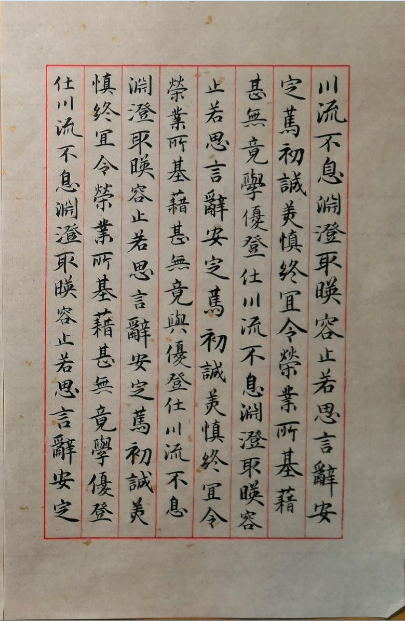 川流不息淵澄取暎容止若思言辭安
定篤初誠美慎終宜令榮業所基藉
甚無竟學優登仕川流不息淵澄取暎容
止若思言辭安定篤初誠美慎終宜令
榮業所基藉甚無竟與優登仕川流不息
淵澄取暎容止若思言辭安定篤初誠美
慎終宜令榮業所基藉甚無竟學優登
仕川流不息淵澄取暎容止若思言辭安定